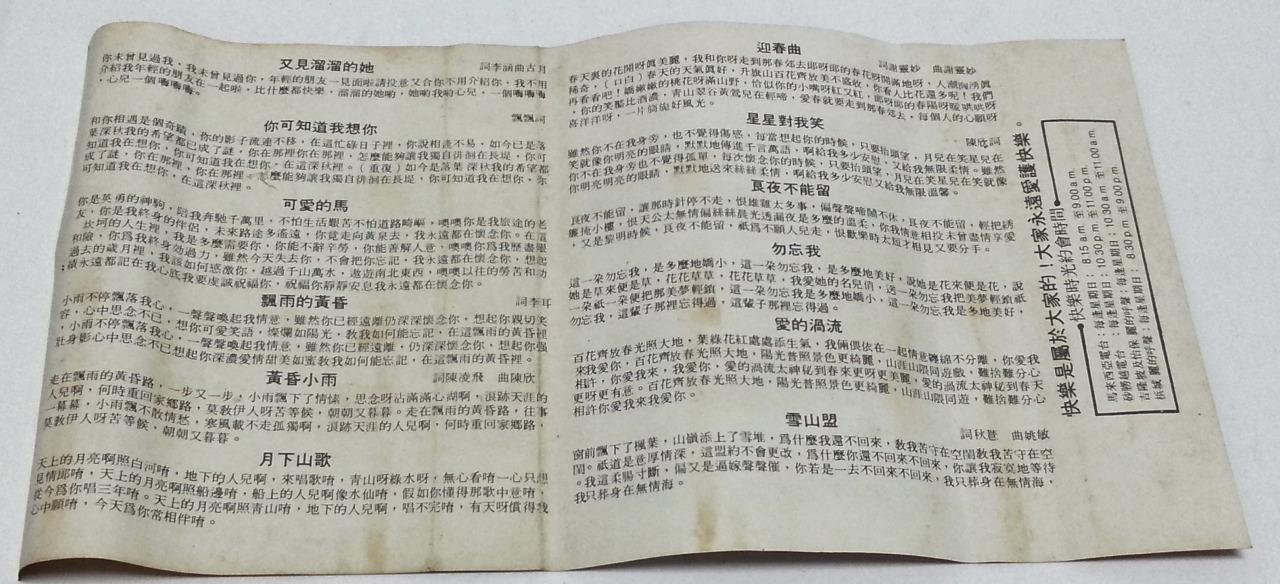 又見溜溜的她
詞李涵曲古月
你未曾見過我，我未曾見過你，年輕的朋友一見面啦請投意又合你不用介紹你，我不用
介紹我年輕的朋友在一起啦，比什麼都快樂，溜溜的她喲，她喲我喲心兒，一個嗨嗨嗨
，心兒一個嗨嗨嗨。
你可知道我想你
飄飄詞
和你相遇是個奇蹟，你的影子流連不移，在這忙碌日子裡，你說相逢不易，如今已是落
葉深秋我的希望都已成了謎，你在那裡你在那裡，怎麼能夠讓我獨自徘徊在長堤，你可
知道我在想你，你可知道我在想你，在這深秋裡。（重復）如今是落葉深秋我的希望都
成了謎，你在那裡，你在那裡。怎麼能夠讓我獨自徘徊在長堤，你可知道我在想你，你
可知道我在想你，在這深秋裡。
可愛的馬
你是英勇的神駒，陪我奔馳千萬里，不怕生活艱苦不怕道路崎嶇，噢噢你是我旅途的老
友，你是我終身的伴侶，未來路途多遙遠，你竟走向黃泉去，我永遠都在懷念你。在這
坎坷的人生裡，我是多麼需要你，你能不辭辛勞，你能善解人意，噢噢你爲我歷盡艱
和險，你爲我終身効過力，雖然今天失去你，不會把你忘記，我永遠都在懷念你，想起
過去的歲月裡，我該如何感激你，越過千山萬水，遨遊南北東西，噢噢以往的勞苦和功
績永遠都記在我心底我要虔誠祝福你，祝福你靜靜安息我永遠都在懷念你。
飄雨的黃昏
詞李耳
小雨不停飄落我心，一聲聲喚起我情意，雖然你已經遠離仍深深懷念你，想起你親切笑
容，心中思念不已，想你可愛笑語，燦爛如陽光，教我如何能忘記，在這飄雨的黃昏裡
，小雨不停飄落我心，一聲聲喚起我情意，雖然你已經遠離，仍深深懷念你，想起你強
壯身影心中思念不已想起你深濃愛情甜美如蜜教我如何能忘記，在這飄雨的黃昏裡。
黃昏小雨
詞陳凌飛　曲陳欣
走在飄雨的黃昏路，一步又一步，小雨飄下了情愫，思念呀沾滿滿心湖啊，浪跡天涯的
人兒啊，何時重回家鄉路，莫教伊人呀苦等候，朝朝又暮暮。走在飄雨的黃昏路，往事
一幕幕，小雨飄不散情愁，寒風載不走孤獨啊，浪跡天涯的人兒啊，何時重回家鄉路，
莫教伊人呀苦等候，朝朝又暮暮。
月下山歌
天上的月亮啊照白河唷，地下的人兒啊，來唱歌唷，青山呀綠水呀，無心看唷一心只想
見情郎唷，天上的月亮啊照船邊唷，船上的人兒啊像水仙唷，假如你懂得那歌中意唷，
從今爲你唱三年唷。天上的月亮啊照青山唷，地下的人兒啊，唱不完唷，有天呀償得我
心中願唷，今天爲你常相伴唷。
迎春曲
詞謝靈妙　曲謝靈妙
春天裏的花開呀眞美麗，我和你呀走到那春郊去郎呀郎的春花呀開滿地呀，人潮洶湧眞
稀奇，（口白）春天的天氣眞好，升旗山百花齊放美不盛收，你看人比花還多呢！我們
再看看吧！嬌嫩嫩的桃花呀滿山野，恰似你的小嘴呀紅又紅，郎呀郎的春陽呀暖哄哄呀
，你的笑靨比酒濃，青山翠谷黃鶯兒在輕啼，愛春就要走到那春郊去，每個人的心願呀
喜洋洋呀，一片旖旎好風光。
星星對我笑
陳欣詞
雖然你不在我身旁，也不覺得傷感，每當想起你的時候，只要抬頭望，月兒在笑星兒在
笑就像你明亮的眼睛，默默地傳達千言萬語，啊給我多少安慰，又給我無限柔情。雖然
你不在我身旁也不覺得孤單，每次懷念你的時候，只要抬頭望，月兒在笑星兒在笑就像
你明亮明亮的眼睛，默默地送來絲絲柔情，啊給我多少安慰又給我無限溫馨。
良夜不能留
良夜不能留，讓那時針停不走，恨雄雞太多事，偏聲聲啼鬧不休，良夜不能留，輕把綉
簾掩小樓，恨天公太無情偏絲絲晨光透漏夜是多麼的溫柔，你我情意相投未曾盡情享愛
，又是黎明時候，良夜不能留，祇爲不願人兒走，恨歡樂時太短才相見又要分手。
勿忘我
這一朵勿忘我，是多麼地嬌小，這一朵勿忘我，是多麼地美好，說她是花來便是花，說
她是草來便是草，花花草草，花花草草，我愛她的名兒俏，送一朵勿忘我把美夢輕鎖，祇
一朵祇一朵便把那美夢輕鎖，這一朵勿忘我是多麼地嬌小，這一朵勿忘我是多麼地美好
勿忘我，這輩子那裡忘得過，這輩子那裡忘得過。
愛的渦流
百花齊放春光照大地，葉綠花紅處處添生氣，我倆偎依在一起情意纏綿不分離，你愛我
來我愛你，百花齊放春光照大地，陽光普照景色更綺麗，山涯山隈同遊戲，難捨難分心
相許，你愛我來，我愛你，愛的渦流太神秘到春來更呀更美麗，愛的渦流太神秘到春天
更呀更有意。百花齊放春光照大地，陽光普照景色更綺麗，山涯山隈同遊，難捨難分心
相許你愛我來我愛你。
雪山盟
詞秋薏　曲姚敏
窗前飄下了楓葉，山嶺添上了雪堆，爲什麼我還不回來，敎我苦守在空閨敎我苦守在空
閨。祇道是意厚情深，這盟約不會更改，爲什麼你還不回來不回來，你讓我寂寞地等待
。我這柔腸寸斷，偏又是逼嫁聲聲催，你若是一去不回來不回來，我只葬身在無情海，
我只葬身在無情海。
快樂是屬於大家的！大家永遠愛護快樂。
•快樂時光約會時間•
馬來西亞電台：每逢星期日： 8:15 a.m. 至 9:00 a.m.
砂勝越電台：每逢星期日： 10:30 p.m. 至 11:00 p.m.
吉隆坡及怡保 麗的呼聲：每逢星期日：10:30 a.m. 至 11:00 a.m.
檳城 麗的呼聲：每逢星期日： 8:30 p.m. 至 9:00 p.m.